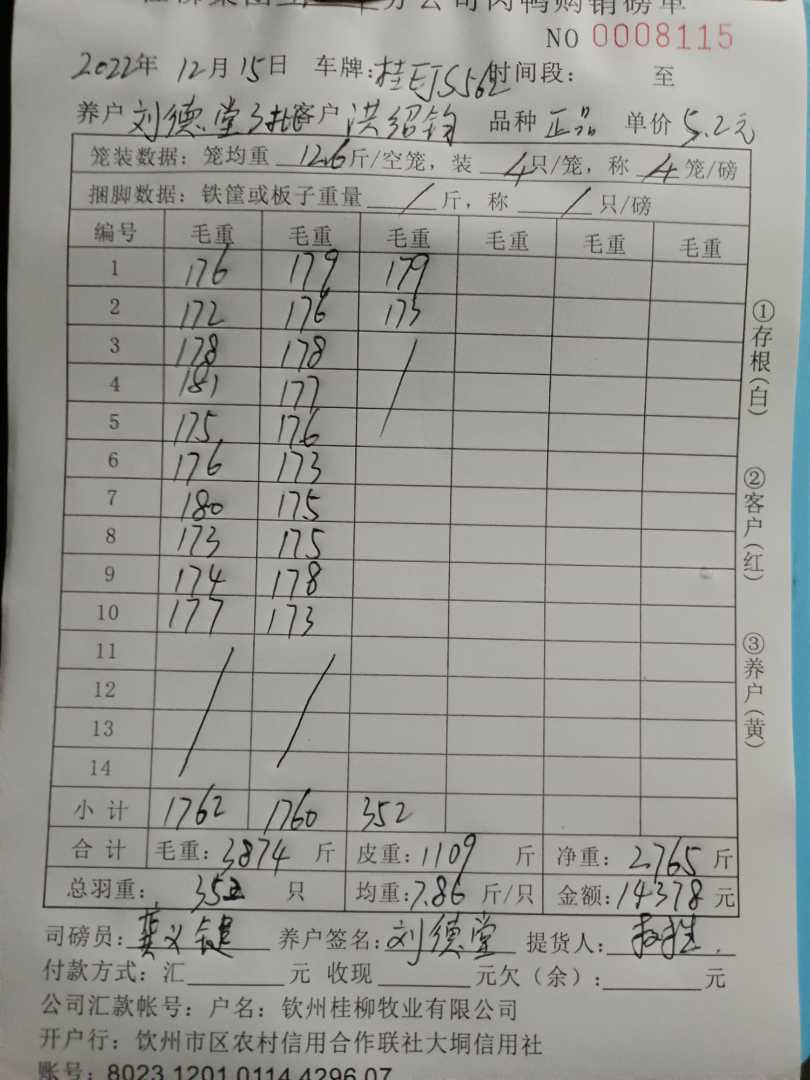 分公司肉鸭购销磅单
NO 0008115
2022年 12月 15日 车牌: 时间段: 至
养户 刘德堂3批 客户 洪绍钧 品种 正品 单价 5.2元
笼装数据: 笼均重 12.6 斤/空笼, 装 4 只/笼, 称 4 笼/磅
捆脚数据: 铁筐或板子重量 / 斤, 称 / 只/磅
编号 毛重 毛重 毛重 毛重 毛重 毛重
1 176 179 179
2 172 176 173
3 178 178
4 181 177
5 175 176
6 176 173
7 180 175
8 173 175
9 174 178
10 177 173
11
12
13
14
小计 1762 1760 352
合计 毛重: 3874 斤 皮重: 1109 斤 净重: 2765 斤
总羽重: 352 只 均重: 7.86 斤/只 金额: 14378 元
司磅员: 龚义键 养户签名: 刘德堂 提货人:
付款方式: 汇 元 收现 元欠(余): 元
公司汇款帐号: 户名: 钦州桂柳牧业有限公司
开户行: 钦州市区农村信用合作联社大垌信用社
账号: 8023 1201 0114 4296 07
①存根(白)
②客户(红)
③养户(黄)